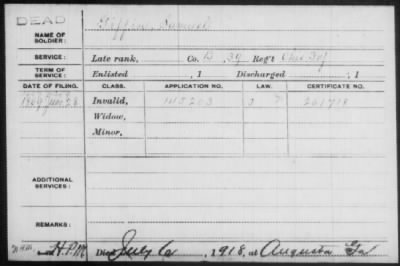 DEAD
NAME OF SOLDIER: Samuel
SERVICE: Late rank, Co. B, 39 Reg't Ohio Inf
TERM OF SERVICE: Enlisted , 1 Discharged , 1
DATE OF FILING. CLASS. APPLICATION NO. LAW. CERTIFICATE NO.
1869 Invalid,
Widow,
Minor,
ADDITIONAL SERVICES:
REMARKS:
Died July 6, 1918, at Augusta Ga